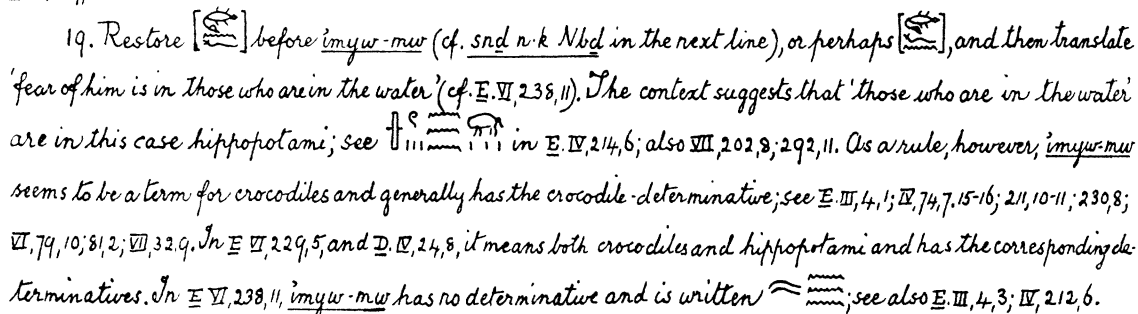 19. Restore [𓆛𓈖] before ꞽmyw-mw (cf. snḏ n·k Nbḏ in the next line), or perhaps [𓆛𓈖], and then translate
'fear of him is in those who are in the water' (cf. E. VI, 238, 11). The context suggests that 'those who are in the water'
are in this case hippopotami; see in E. IV, 214, 6; also VII, 202, 8; 292, 11. As a rule, however, ꞽmyw-mw
seems to be a term for crocodiles and generally has the crocodile-determinative; see E. III, 4, 1; IV, 74, 7. 15-16; 211, 10-11; 230, 8;
VI, 79, 10; 81, 2; VII, 32. 9. In E VI, 229, 5, and D. IV, 24, 8, it means both crocodiles and hippopotami and has the corresponding de-
terminatives. In E VI, 238, 11, ꞽmyw-mw has no determinative and is written ; see also E. III, 4, 3; IV, 212, 6.